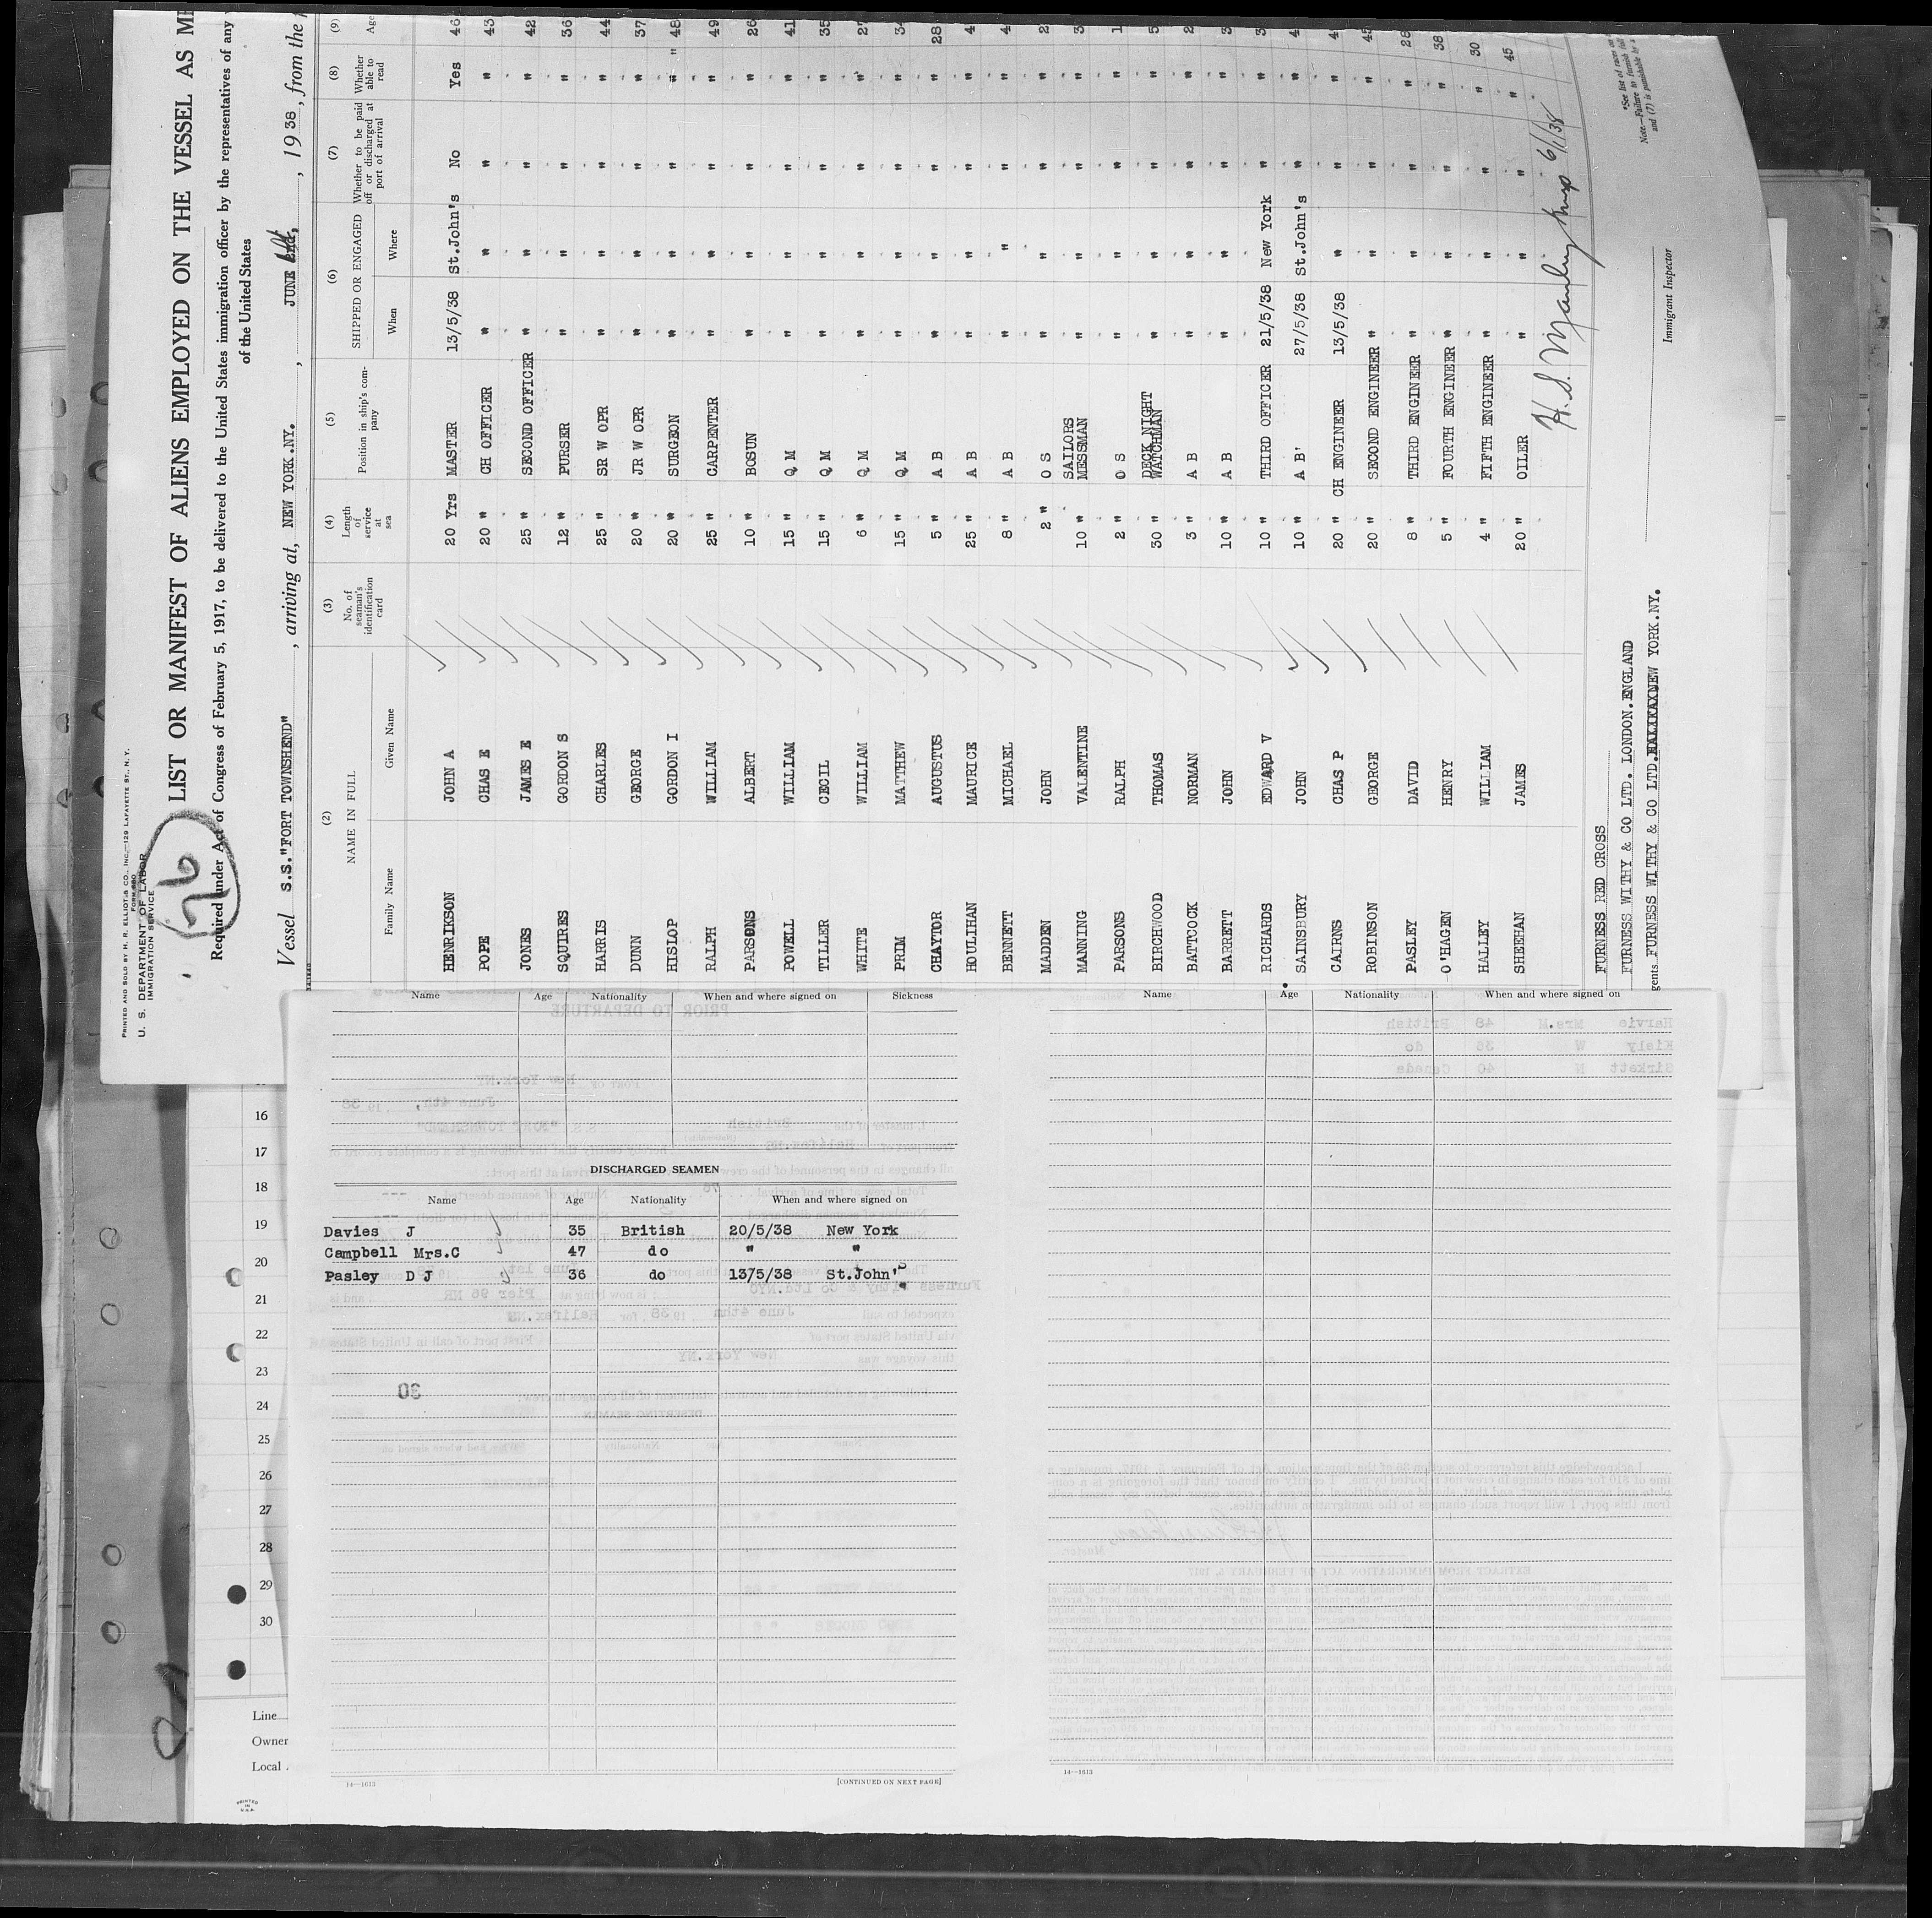 PRINTED AND SOLD BY H. R. ELLIOT & CO., INC.—129 LAFAYETTE ST., N. Y.
U. S. DEPARTMENT OF LABOR
IMMIGRATION SERVICE
76
LIST OR MANIFEST OF ALIENS EMPLOYED ON THE VESSEL AS
Required under Act of Congress of February 5, 1917, to be delivered to the United States immigration officer by the representatives of any
of the United States
Vessel S.S."FORT TOWNSHEND" , arriving at, NEW YORK.NY. , JUNE , 1938, from the
(2) (3) (4) (5) (6) (7) (8) (9)
NAME IN FULL No. of seaman's identification card Length of service at sea Position in ship's company SHIPPED OR ENGAGED Whether to be paid off or discharged at port of arrival Whether able to read Age
Family Name Given Name When Where
HENRIKSON JOHN A 20 Yrs MASTER 13/5/38 St.John's No Yes 46
POPE CHAS E 20 " CH OFFICER " " " " 43
JONES JAMES E 25 " SECOND OFFICER " " " " 42
SQUIRES GORDON S 12 " PURSER " " " " 36
HARRIS CHARLES 25 " SR W OPR " " " " 44
DUNN GEORGE 20 " JR W OPR " " " " 37
HISLOP GORDON I 20 " SURGEON " " " " 48
RALPH WILLIAM 25 " CARPENTER " " " " 49
PARSONS ALBERT 10 " BOSUN " " " " 26
POWELL WILLIAM 15 " Q M " " " " 41
TILLER CECIL 15 " Q M " " " " 35
WHITE WILLIAM 6 " Q M " " " " 27
PRIM MATTHEW 15 " Q M " " " "
CHAYTOR AUGUSTUS 5 " A B " " " " 28
HOULIHAN MAURICE 25 " A B " " " "
BENNETT MICHAEL 8 " A B " " " "
MADDEN JOHN 2 " O S " " " "
MANNING VALENTINE 10 " SAILORS MESSMAN " " " "
PARSONS RALPH 2 " O S " " " "
BIRCHWOOD THOMAS 30 " DECK NIGHT WATCHMAN " " " "
BATTCOCK NORMAN 3 " A B " " " "
BARRETT JOHN 10 " A B " " " "
RICHARDS EDWARD V 10 " THIRD OFFICER 21/5/38 New York " "
SAINSBURY JOHN 10 " A B' 27/5/38 St.John's " "
CAIRNS CHAS P 20 " CH ENGINEER 13/5/38 " " "
ROBINSON GEORGE 20 " SECOND ENGINEER " " " " 45
PASLEY DAVID 8 " THIRD ENGINEER " " " " 28
O'HAGEN HENRY 5 " FOURTH ENGINEER " " " " 38
HALLEY WILLIAM 4 " FIFTH ENGINEER " " " " 30
SHEEHAN JAMES 20 " OILER " " " " 45
6/1/38
FURNESS RED CROSS
FURNESS WITHY & CO LTD. LONDON.ENGLAND
gents FURNESS WITHY & CO LTD. NEW YORK.NY.
Immigrant Inspector
*See list of races on
Note.—Failure to furnish full
and (7) is punishable by a
Name Age Nationality When and where signed on Sickness
DISCHARGED SEAMEN
Name Age Nationality When and where signed on
Davies J 35 British 20/5/38 New York
Campbell Mrs.C 47 do " "
Pasley D J 36 do 13/5/38 St.John's
30
14—1613 [CONTINUED ON NEXT PAGE]
Name Age Nationality When and where signed on
14—1613
16
17
18
19
20
21
22
23
24
25
26
27
28
29
30
Line
Owner
Local
PRINTED
IN
U.S.A.